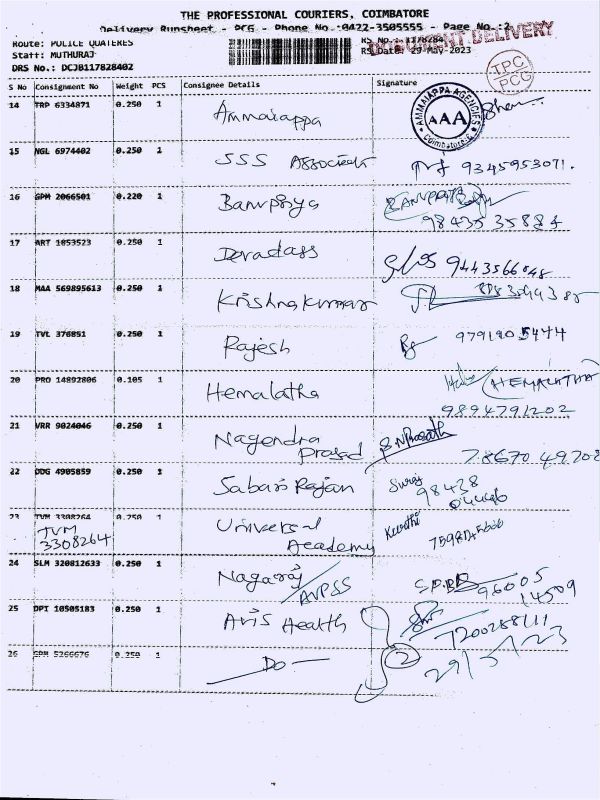 THE PROFESSIONAL COURIERS, COIMBATORE
Delivery Runsheet - PCG - Phone No.:0422-3505555 - Page No.:2
Route: POLICE QUATERES
RS No.: 1178284
DOCUMENT DELIVERY
Staff: MUTHURAJ
RS Date: 29-May-2023
DRS No.: DCJB117828402
TPC
PCG
S No Consignment No Weight PCS Consignee Details Signature
14 TRP 6334871 0.250 1 Ammaiappa
AMMAIAPPA AGENCIES
AAA
Coimbatore
15 NGL 6974402 0.250 1 SSS Associates 9345953071.
16 GPM 2066501 0.220 1 Banupriya
98435 35884
17 ART 1053523 0.250 1 Devadass 9443566048
18 MAA 569895613 0.250 1 Krishnakumar
19 TVL 376851 0.250 1 Rajesh 979190 5474
20 PRO 14892806 0.105 1 Hemalatha (HEMALATHA)
9894791202
21 VRR 9024046 0.250 1 Nagendra Prasad
78670 49702
22 DDG 4905859 0.250 1 Sabari Rajan Suraj
98438
04446
23 TVM 3308264 0.250 1 Universal Academy Keerthi
TVM
3308264
24 SLM 320812633 0.250 1 Nagaraj / AVPSS
96005
14509
25 DPT 10505183 0.250 1 Aris Health
7200288111
26 GPM 5266676 0.250 1 — Do — 2
29/5/23